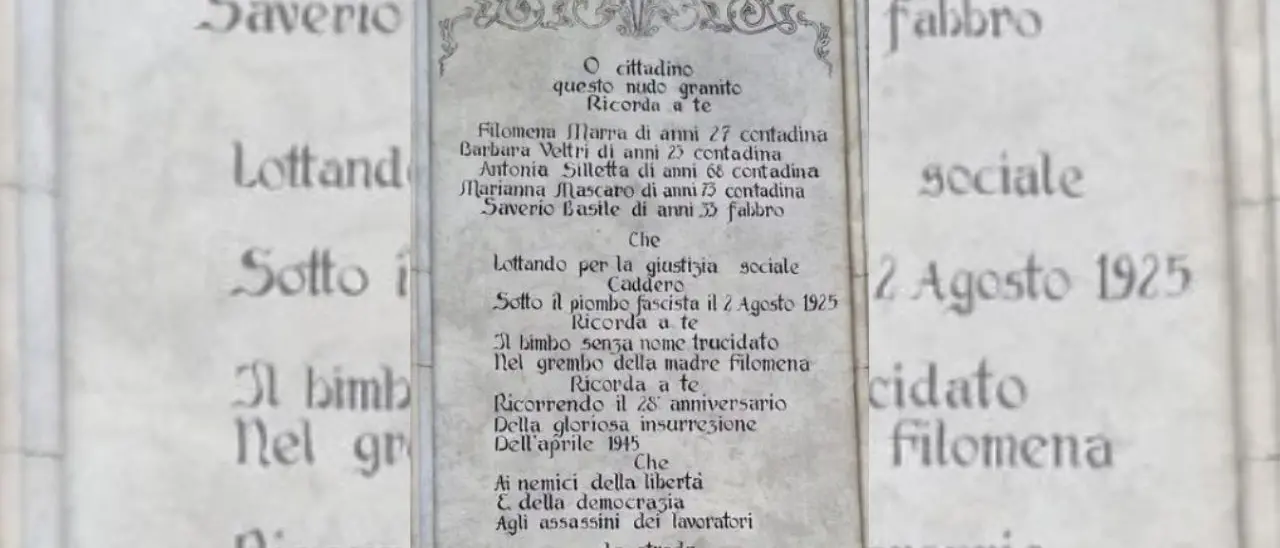 O cittadino
questo nudo granito
Ricorda a te
Filomena Marra di anni 27 contadina
Barbara Veltri di anni 23 contadina
Antonia Silletta di anni 68 contadina
Marianna Mascaro di anni 73 contadina
Saverio Basile di anni 33 fabbro
Che
Lottando per la giustizia sociale
Caddero
Sotto il piombo fascista il 2 Agosto 1925
Ricorda a te
Il bimbo senza nome trucidato
Nel grembo della madre Filomena
Ricorda a te
Ricorrendo il 28° anniversario
Della gloriosa insurrezione
Dell'aprile 1945
Che
Ai nemici della libertà
E della democrazia
Agli assassini dei lavoratori
la strada